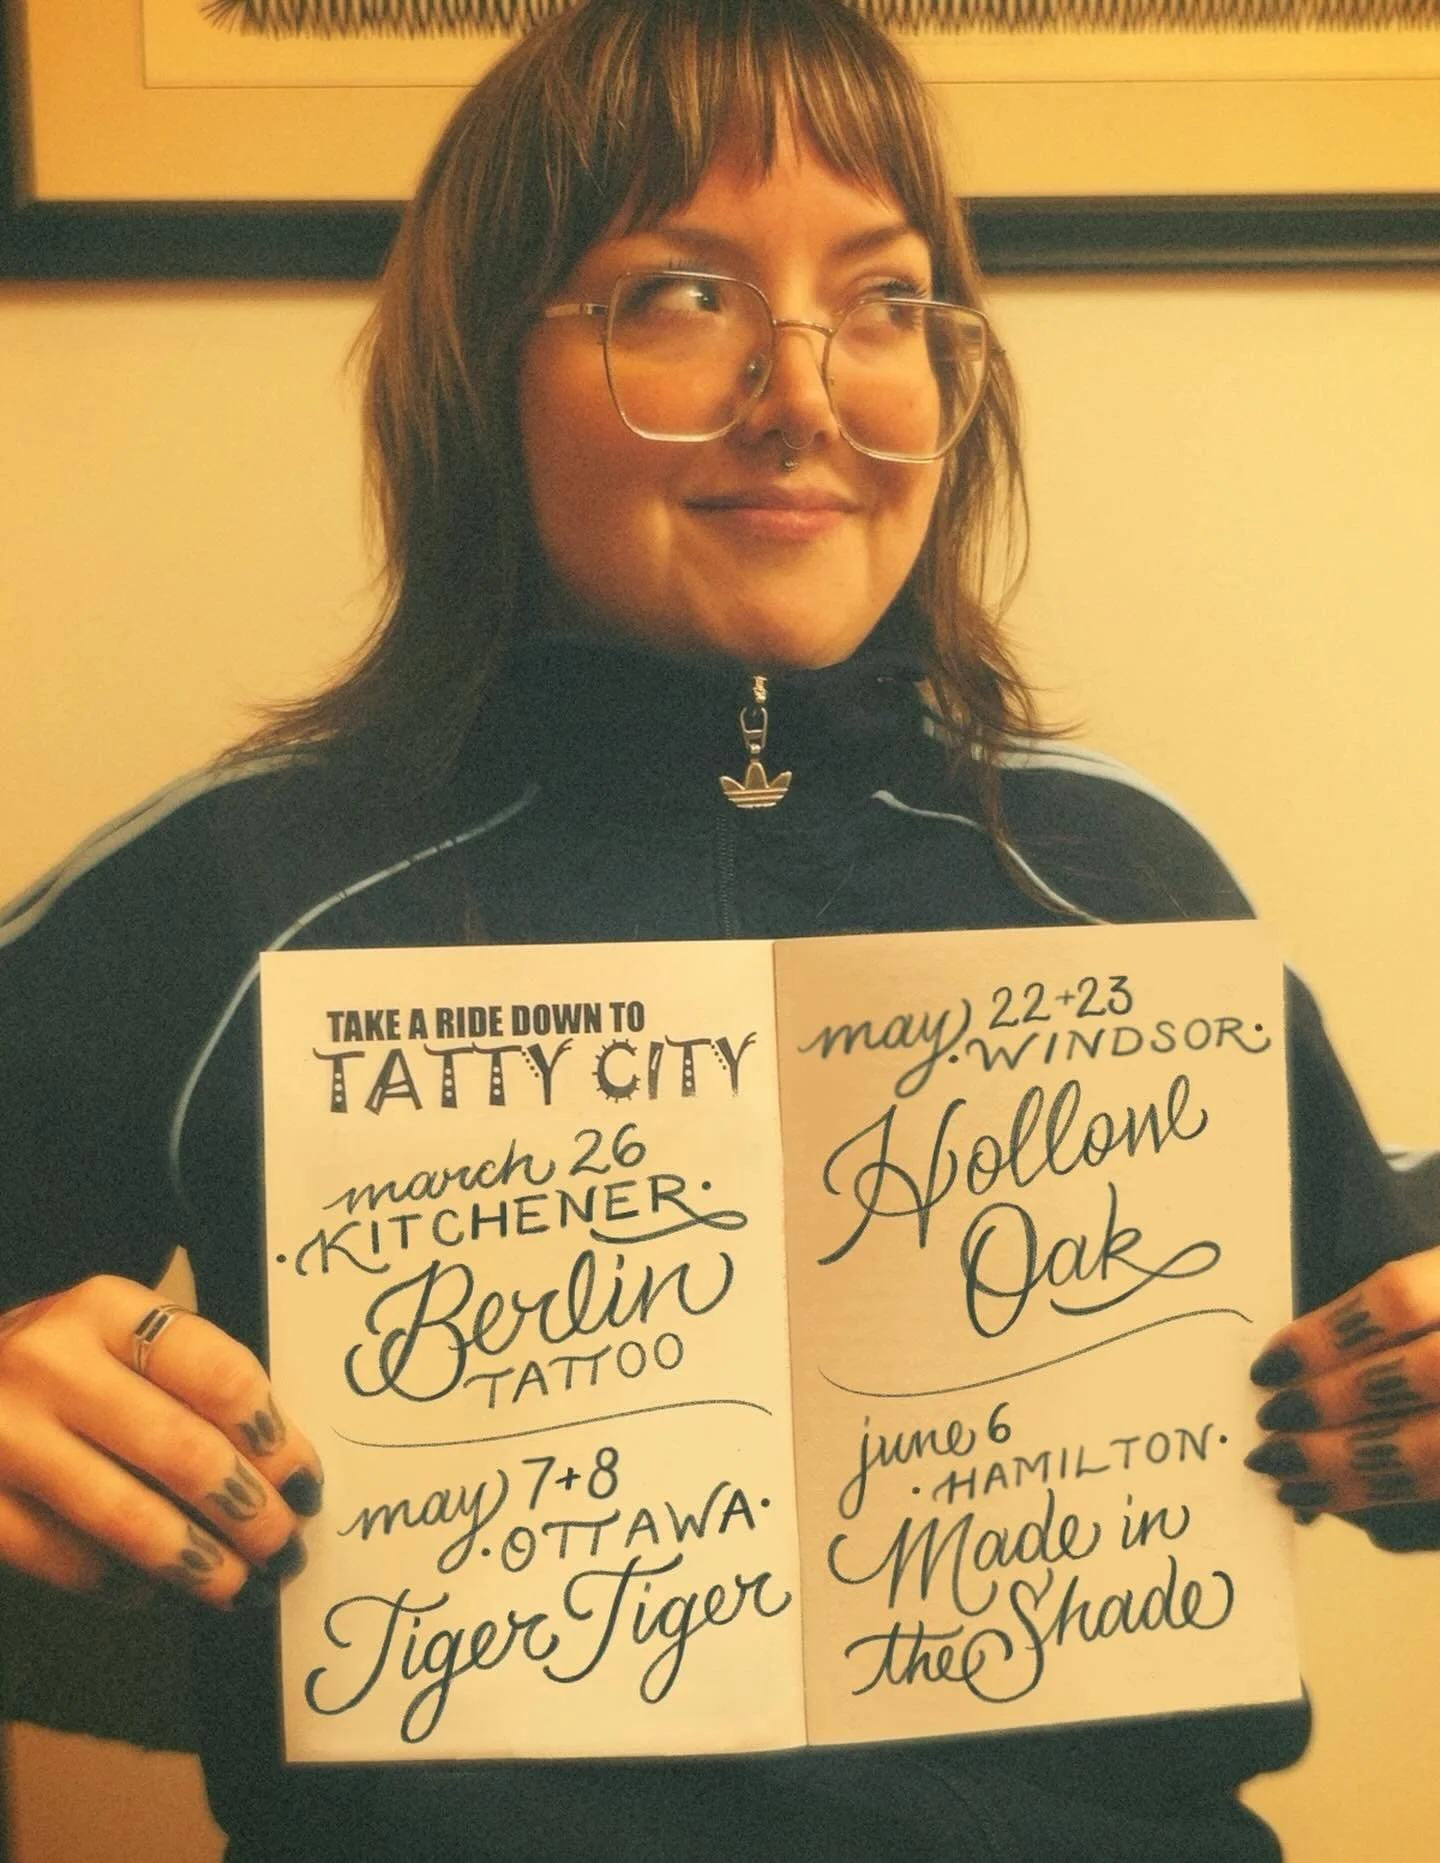 TAKE A RIDE DOWN TO
TATTY CITY
march 26
·KITCHENER·
Berlin
TATTOO
may 7+8
·OTTAWA·
Tiger Tiger
may 22+23
·WINDSOR·
Hollow
Oak
june 6
·HAMILTON·
Made in
the Shade